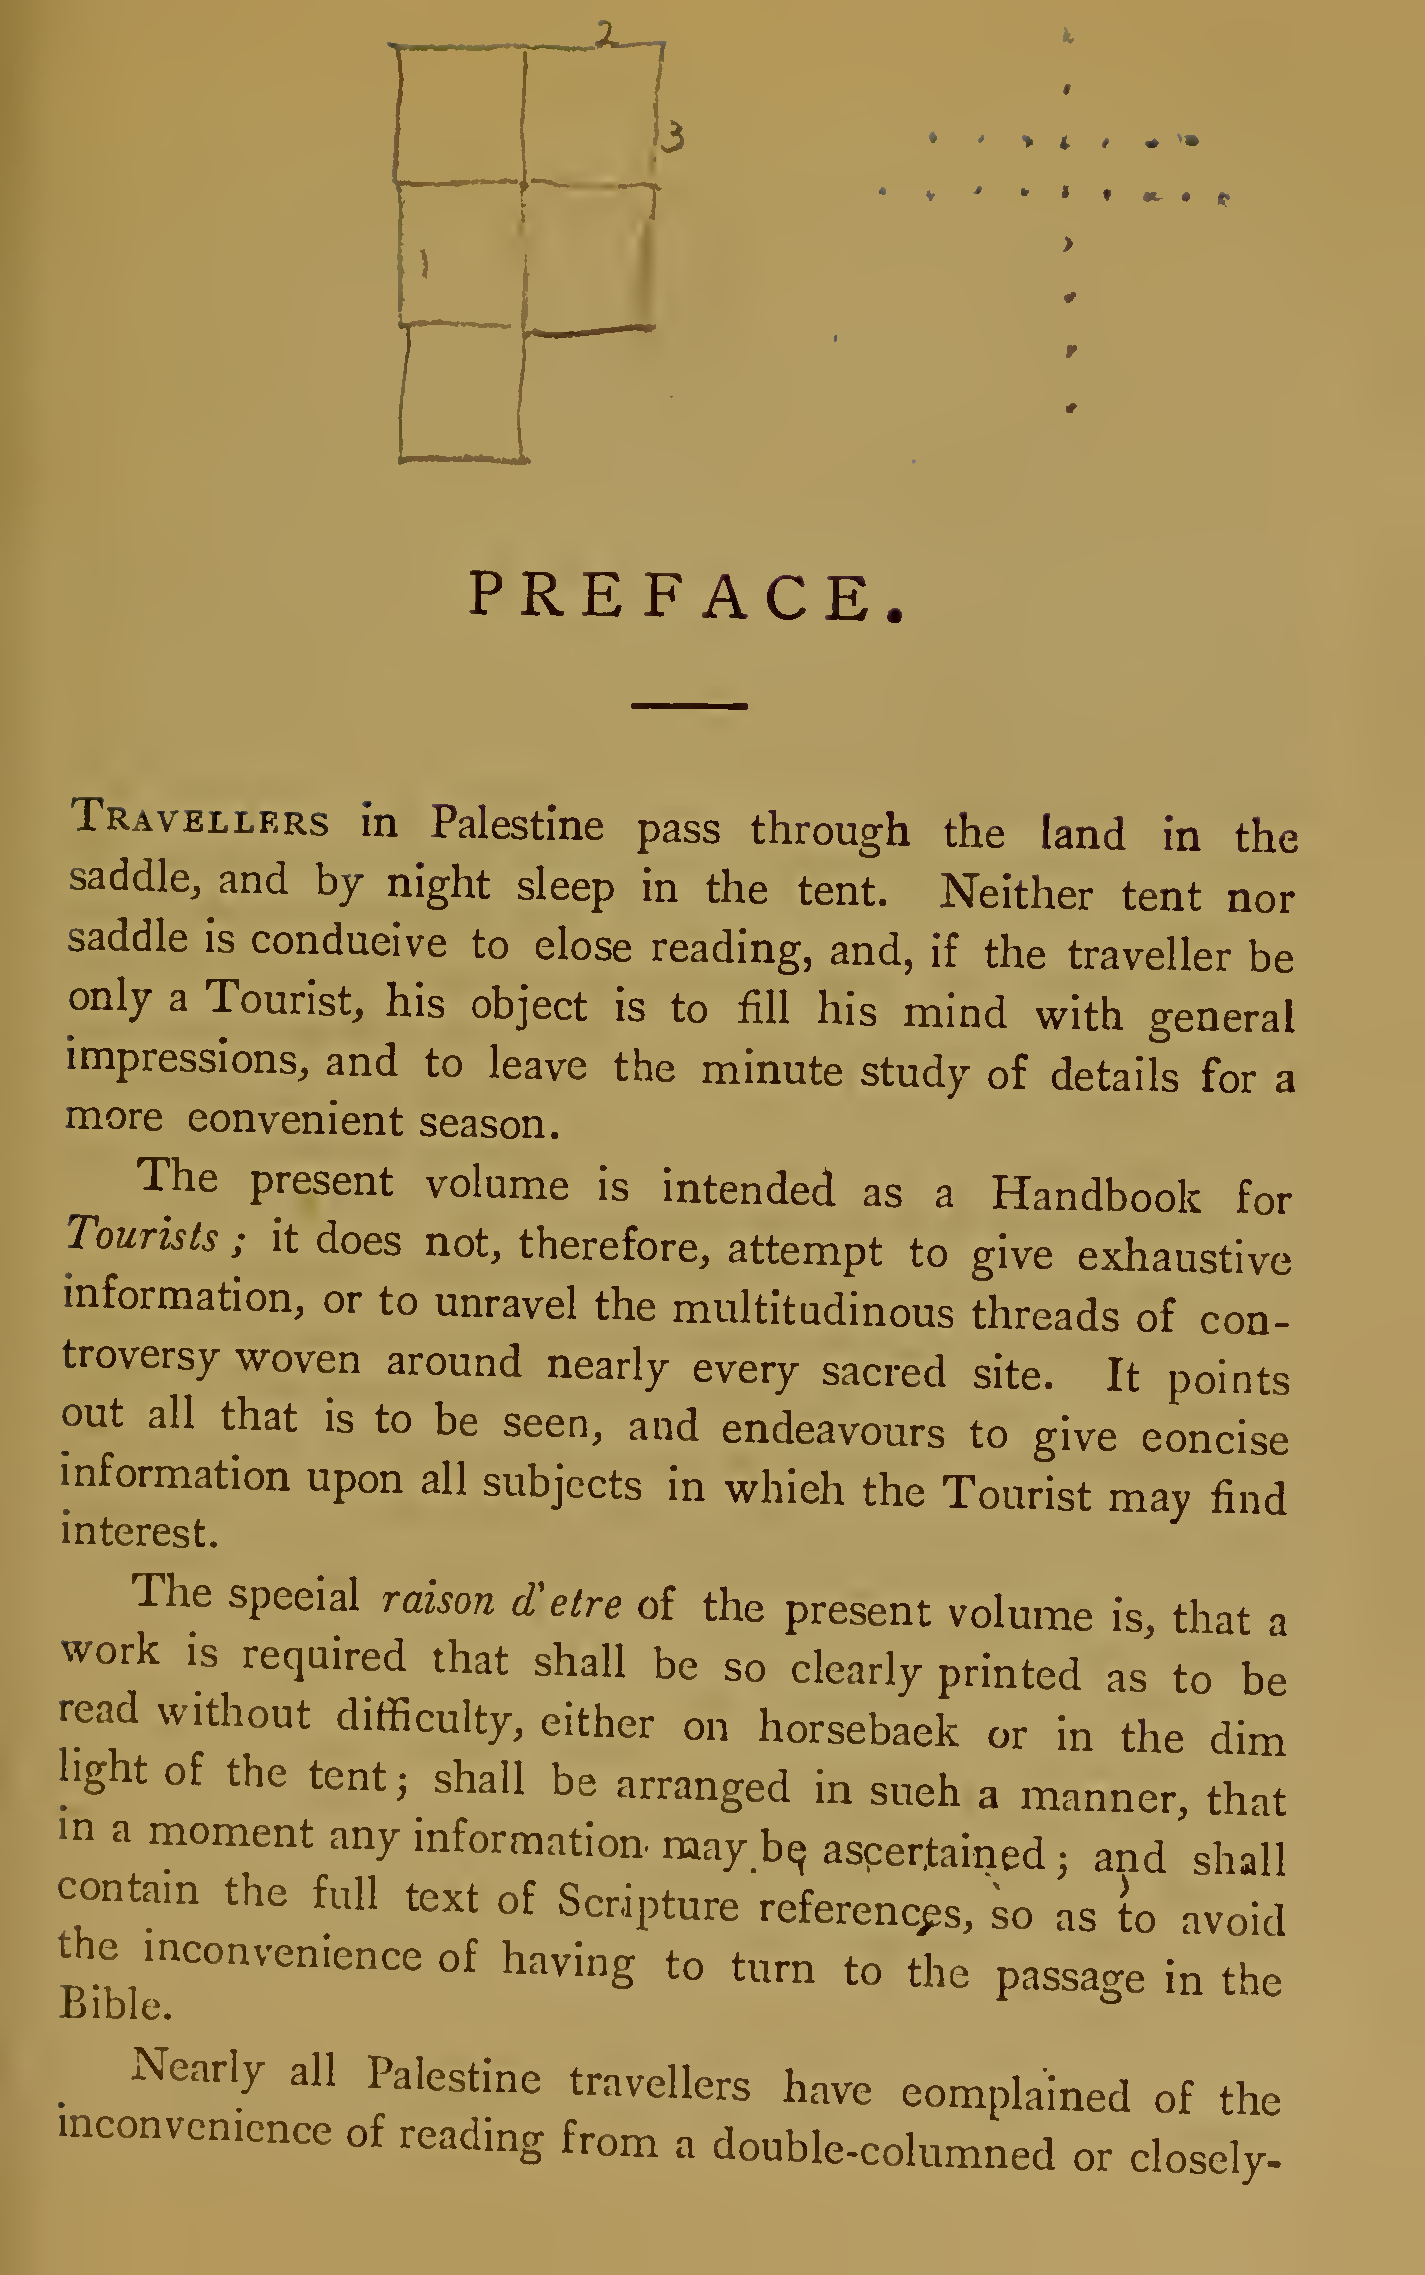 2
3
1
PREFACE.
TRAVELLERS in Palestine pass through the land in the
saddle, and by night sleep in the tent. Neither tent nor
saddle is conducive to close reading, and, if the traveller be
only a Tourist, his object is to fill his mind with general
impressions, and to leave the minute study of details for a
more convenient season.
The present volume is intended as a Handbook for
Tourists; it does not, therefore, attempt to give exhaustive
information, or to unravel the multitudinous threads of con-
troversy woven around nearly every sacred site. It points
out all that is to be seen, and endeavours to give concise
information upon all subjects in which the Tourist may find
interest.
The special raison d'etre of the present volume is, that a
work is required that shall be so clearly printed as to be
read without difficulty, either on horseback or in the dim
light of the tent; shall be arranged in such a manner, that
in a moment any information may be ascertained; and shall
contain the full text of Scripture references, so as to avoid
the inconvenience of having to turn to the passage in the
Bible.
Nearly all Palestine travellers have complained of the
inconvenience of reading from a double-columned or closely-